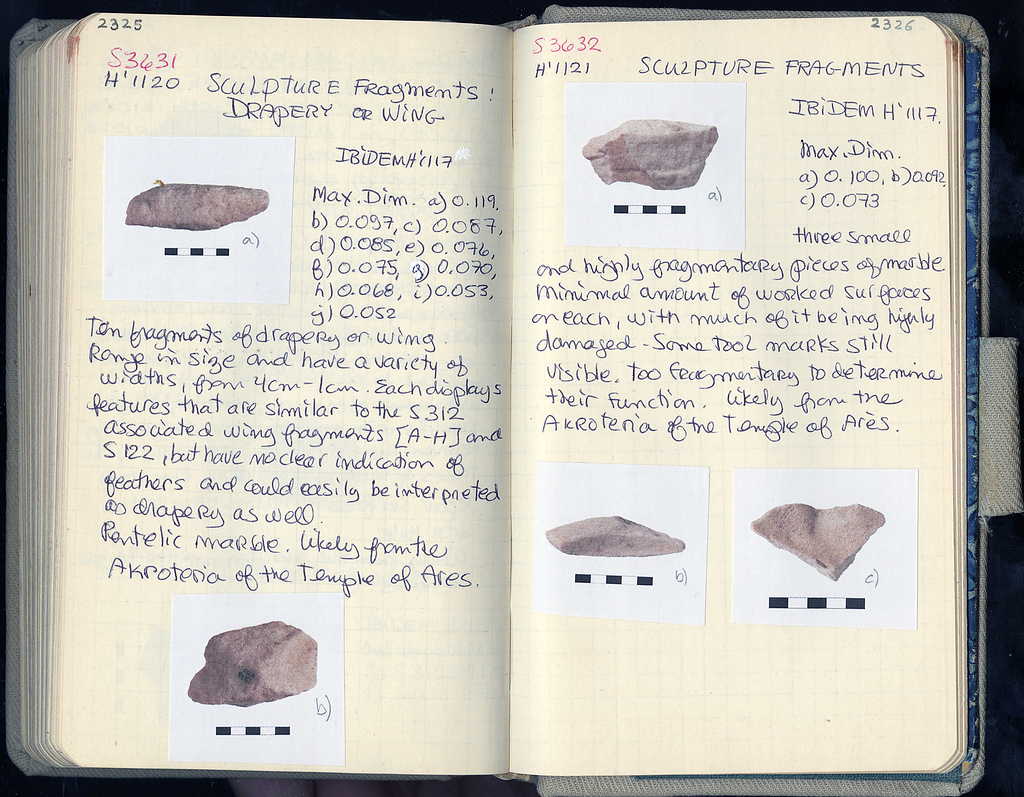 2325
S3631
H'1120 SCULPTURE Fragments:
DRAPERY or WING
IBIDEM H'1117
a)
Max. Dim. a) 0.119,
b) 0.097, c) 0.087,
d) 0.085, e) 0.076,
f) 0.075, g) 0.070,
h) 0.068, i) 0.053,
j) 0.052
Ten fragments of drapery or wing.
Range in size and have a variety of
widths, from 4cm-1cm. Each displays
features that are similar to the S312
associated wing fragments [A-H] and
S122, but have no clear indication of
feathers and could easily be interpreted
as drapery as well.
Pentelic marble. Likely from the
Akroteria of the Temple of Ares.
b)
2326
S3632
H'1121 SCULPTURE FRAGMENTS
IBIDEM H'1117.
a)
Max. Dim.
a) 0.100, b) 0.092,
c) 0.073
three small
and highly fragmentary pieces of marble
minimal amount of worked surfaces
on each, with much of it being highly
damaged - Some tool marks still
visible. too fragmentary to determine
their function. likely from the
Akroteria of the Temple of Ares.
b)
c)